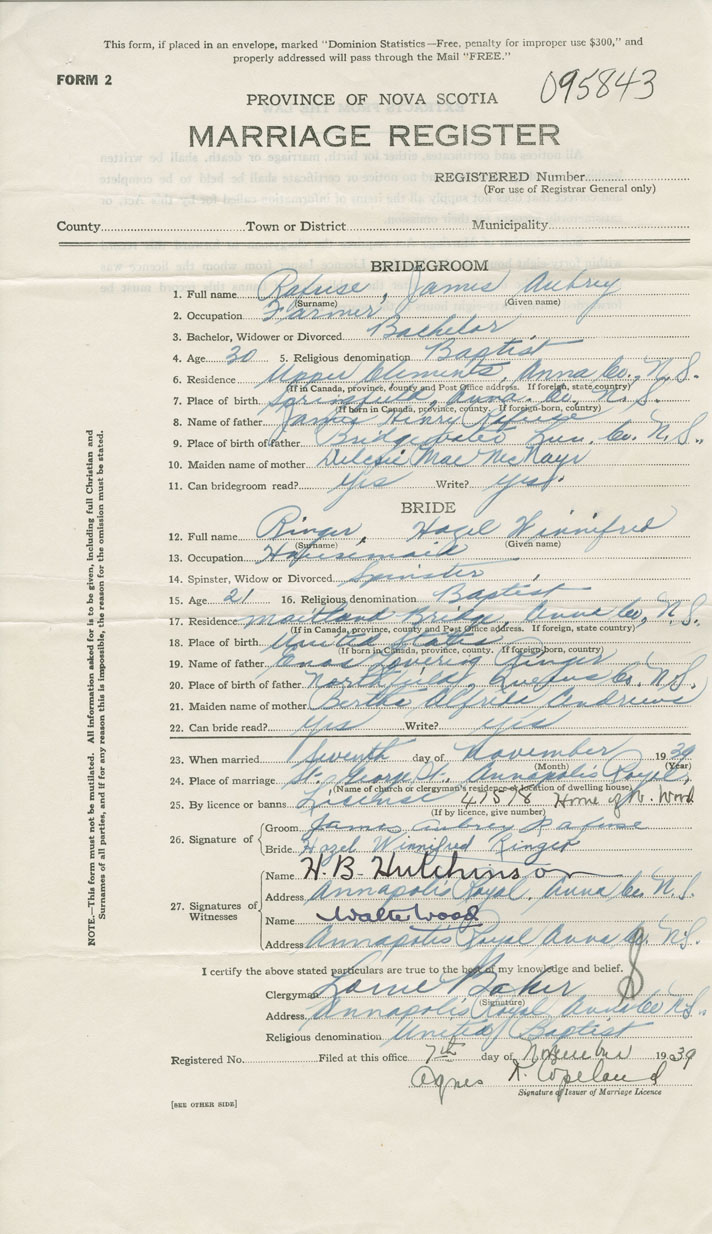 This form, if placed in an envelope, marked "Dominion Statistics—Free, penalty for improper use $300," and
properly addressed will pass through the Mail "FREE."
FORM 2
095843
PROVINCE OF NOVA SCOTIA
MARRIAGE REGISTER
REGISTERED Number
(For use of Registrar General only)
County Town or District Municipality
BRIDEGROOM
1. Full name Rafuse, James Aubrey
(Surname) (Given name)
2. Occupation Farmer
3. Bachelor, Widower or Divorced Bachelor
4. Age 30 5. Religious denomination Baptist
6. Residence Upper Clements Anna Co., N.S.
(If in Canada, province, county and Post Office address. If foreign, state country)
7. Place of birth Springfield, Anna. Co. N.S.
(If born in Canada, province, county. If foreign-born, country)
8. Name of father James Henry Rafuse
9. Place of birth of father Bridgewater Lun. Co. N.S.
10. Maiden name of mother Mae
11. Can bridegroom read? Yes Write? Yes
BRIDE
12. Full name Ringer, Hazel Winnifred
(Surname) (Given name)
13. Occupation Housemaid
14. Spinster, Widow or Divorced Spinster
15. Age 21 16. Religious denomination Baptist
17. Residence Maitland Bridge, Anna Co, N.S.
(If in Canada, province, county and Post Office address. If foreign, state country)
18. Place of birth United States
(If born in Canada, province, county. If foreign-born, country)
19. Name of father Enos Lovering Ringer
20. Place of father Northfield, Queens Co. N.S.
21. Maiden name of mother Bertha Alfrida Andrews
22. Can bride read? Yes Write? yes
23. When married Seventh day of November 1939
(Month) (Year)
24. Place of marriage St. George St., Annapolis Royal,
(Name of church or clergyman's residence or location of dwelling house)
25. By licence or banns License 41578 Home of W. Wood
(If by licence, give number)
26. Signature of Groom James Aubrey Rafuse
Bride Hazel Winnifred Ringer
27. Signatures of Witnesses
Name H. B. Hutchinson
Address Annapolis Royal, Anna Co. N.S.
Name Walter Wood
Address Annapolis Royal Anna Co. N.S.
I certify the above stated particulars are true to the best of my knowledge and belief.
Clergyman Lorne Baker
(Signature)
Address Annapolis Royal Anna Co N.S.
Religious denomination United Baptist
Registered No. Filed at this office 7th day of November 1939
Agnes R. Copeland
Signature of Issuer of Marriage Licence
[SEE OTHER SIDE]
NOTE.—This form must not be mutilated. All information asked for is to be given, including full Christian and
Surnames of all parties, and if for any reason this is impossible, the reason for the omission must be stated.